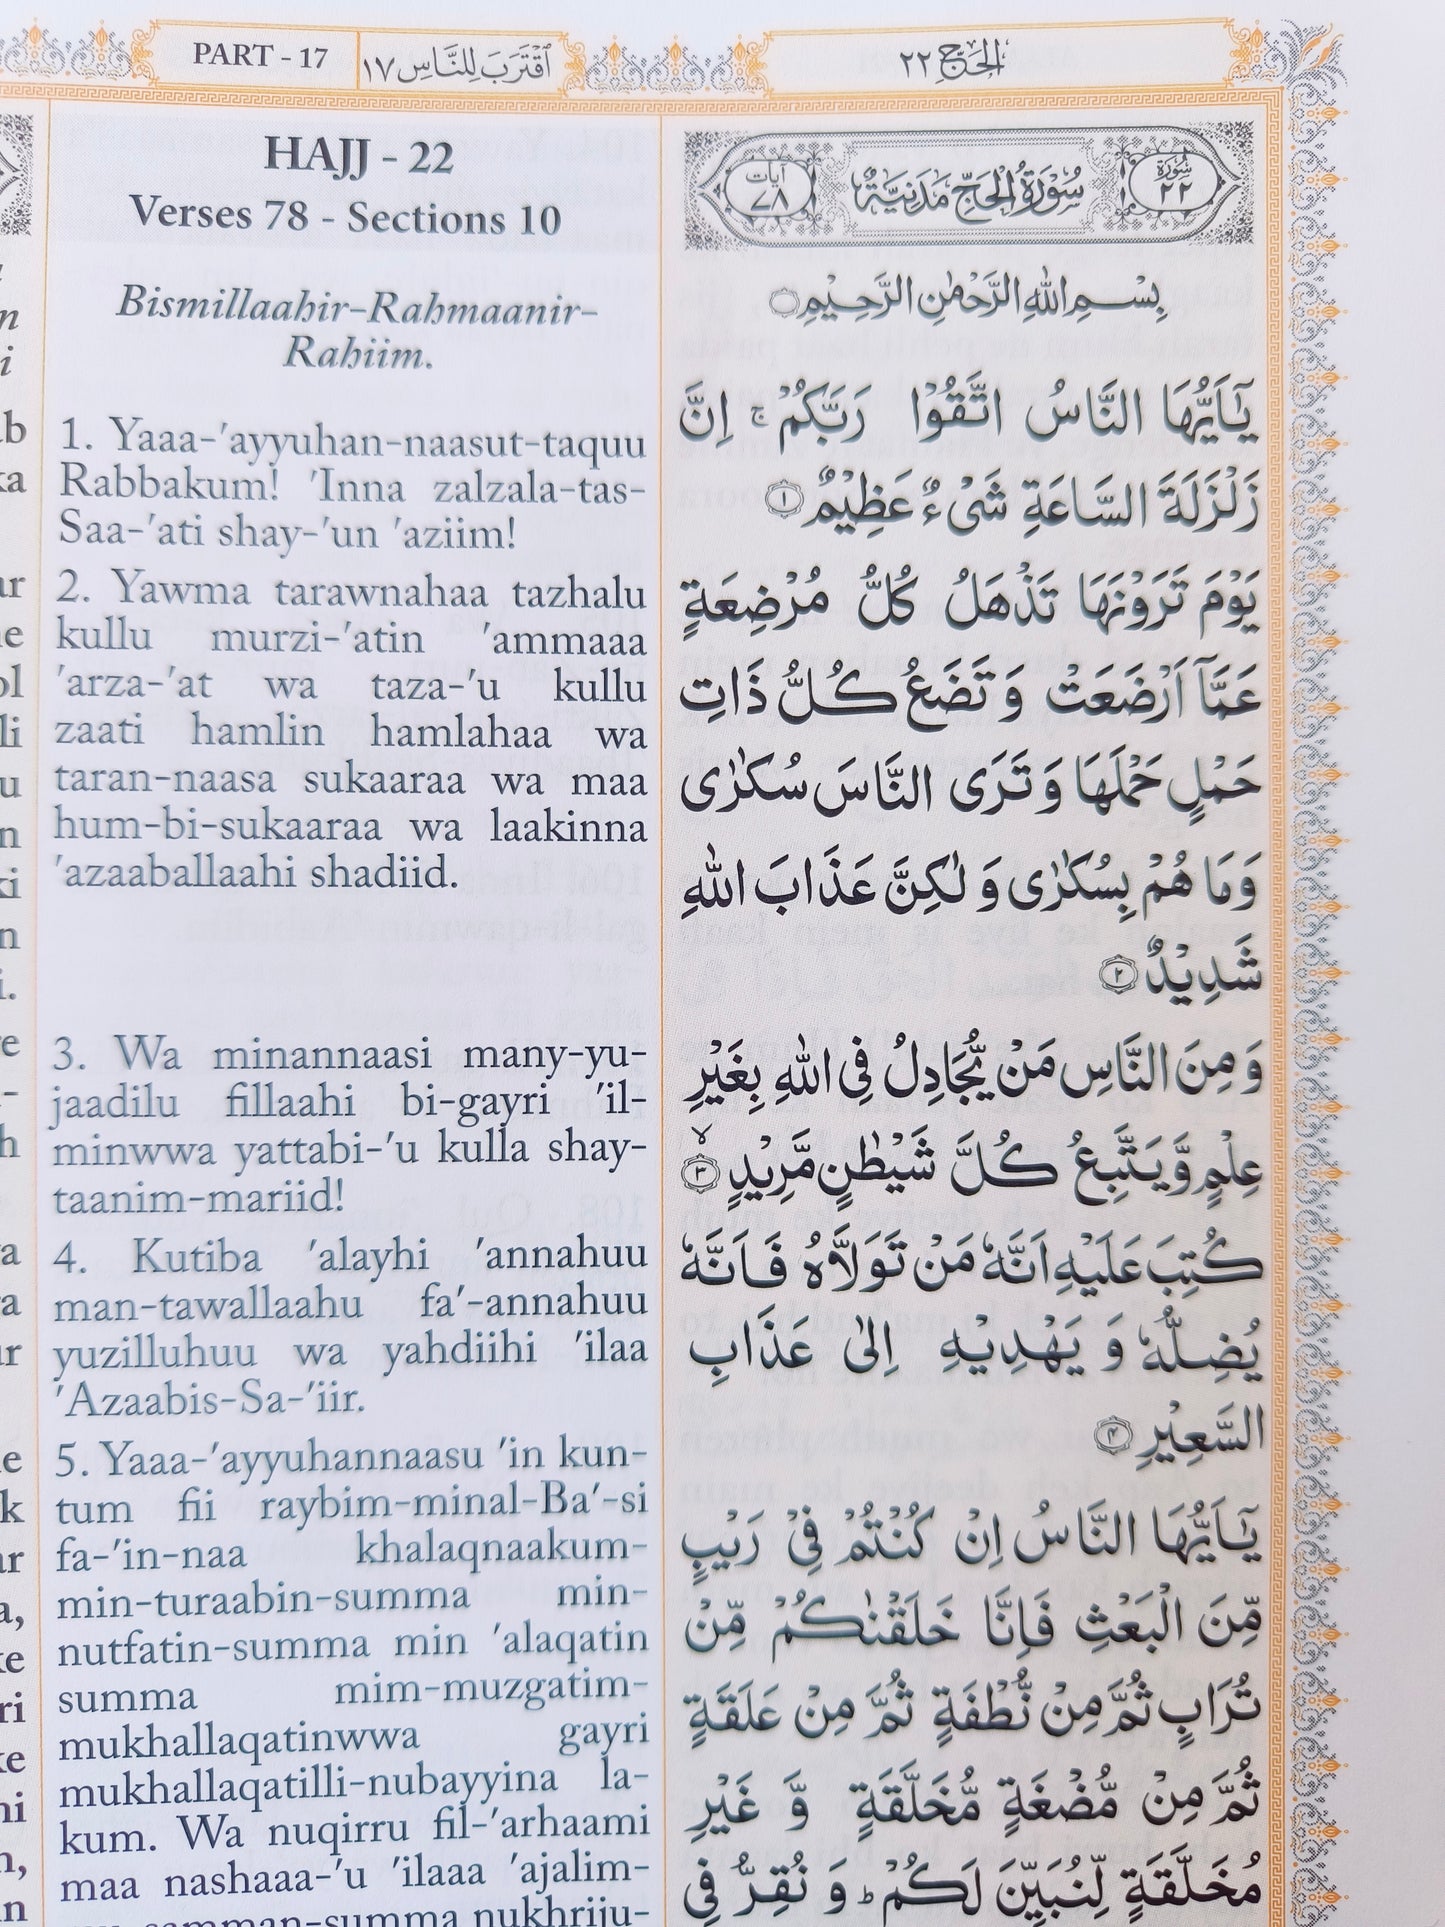 PART - 17
اَقْتَرَبَ لِلنَّاسِ ١٧
الحَجّ ٢٢
HAJJ - 22
Verses 78 - Sections 10
Bismillaahir-Rahmaanir-
Rahiim.
1. Yaaa-'ayyuhan-naasut-taquu
Rabbakum! 'Inna zalzala-tas-
Saa-'ati shay-'un 'aziim!
2. Yawma tarawnahaa tazhalu
kullu murzi-'atin 'ammaaa
'arza-'at wa taza-'u kullu
zaati hamlin hamlahaa wa
taran-naasa sukaaraa wa maa
hum-bi-sukaaraa wa laakinna
'azaaballaahi shadiid.
3. Wa minannaasi many-yu-
jaadilu fillaahi bi-gayri 'il-
minwwa yattabi-'u kulla shay-
taanim-mariid!
4. Kutiba 'alayhi 'annahuu
man-tawallaahu fa'-annahuu
yuzilluhuu wa yahdiihi 'ilaa
'Azaabis-Sa-'iir.
5. Yaaa-'ayyuhannaasu 'in kun-
tum fii raybim-minal-Ba'-si
fa-'in-naa khalaqnaakum-
min-turaabin-summa min-
nutfatin-summa min 'alaqatin
summa mim-muzgatim-
mukhallaqatinwwa gayri
mukhallaqatilli-nubayyina la-
kum. Wa nuqirru fil-'arhaami
maa nashaaa-'u 'ilaaa 'ajalim-
summan-summa nukhriju-
سُوْرَة ٢٢ سُوْرَةُ الْحَجِّ مَدَنِيَّةٌ اٰيات ٧٨
بِسْمِ اللهِ الرَّحْمٰنِ الرَّحِيْمِ
يٰٓاَيُّهَا النَّاسُ اتَّقُوْا رَبَّكُمْ ۚ اِنَّ
زَلْزَلَةَ السَّاعَةِ شَىْءٌ عَظِيْمٌ ١
يَوْمَ تَرَوْنَهَا تَذْهَلُ كُلُّ مُرْضِعَةٍ
عَمَّآ اَرْضَعَتْ وَ تَضَعُ كُلُّ ذَاتِ
حَمْلٍ حَمْلَهَا وَ تَرَى النَّاسَ سُكٰرٰى
وَمَا هُمْ بِسُكٰرٰى وَ لٰكِنَّ عَذَابَ اللهِ
شَدِيْدٌ ٢
وَ مِنَ النَّاسِ مَنْ يُّجَادِلُ فِى اللهِ بِغَيْرِ
عِلْمٍ وَّ يَتَّبِعُ كُلَّ شَيْطٰنٍ مَّرِيْدٍ ۙ ٣
كُتِبَ عَلَيْهِ اَنَّهٗ مَنْ تَوَلَّاهُ فَاَنَّهٗ
يُضِلُّهٗ وَ يَهْدِيْهِ اِلٰى عَذَابِ
السَّعِيْرِ ٤
يٰٓاَيُّهَا النَّاسُ اِنْ كُنْتُمْ فِىْ رَيْبٍ
مِّنَ الْبَعْثِ فَاِنَّا خَلَقْنٰكُمْ مِّنْ
تُرَابٍ ثُمَّ مِنْ نُّطْفَةٍ ثُمَّ مِنْ عَلَقَةٍ
ثُمَّ مِنْ مُّضْغَةٍ مُّخَلَّقَةٍ وَّ غَيْرِ
مُخَلَّقَةٍ لِّنُبَيِّنَ لَكُمْ ؕ وَ نُقِرُّ فِى